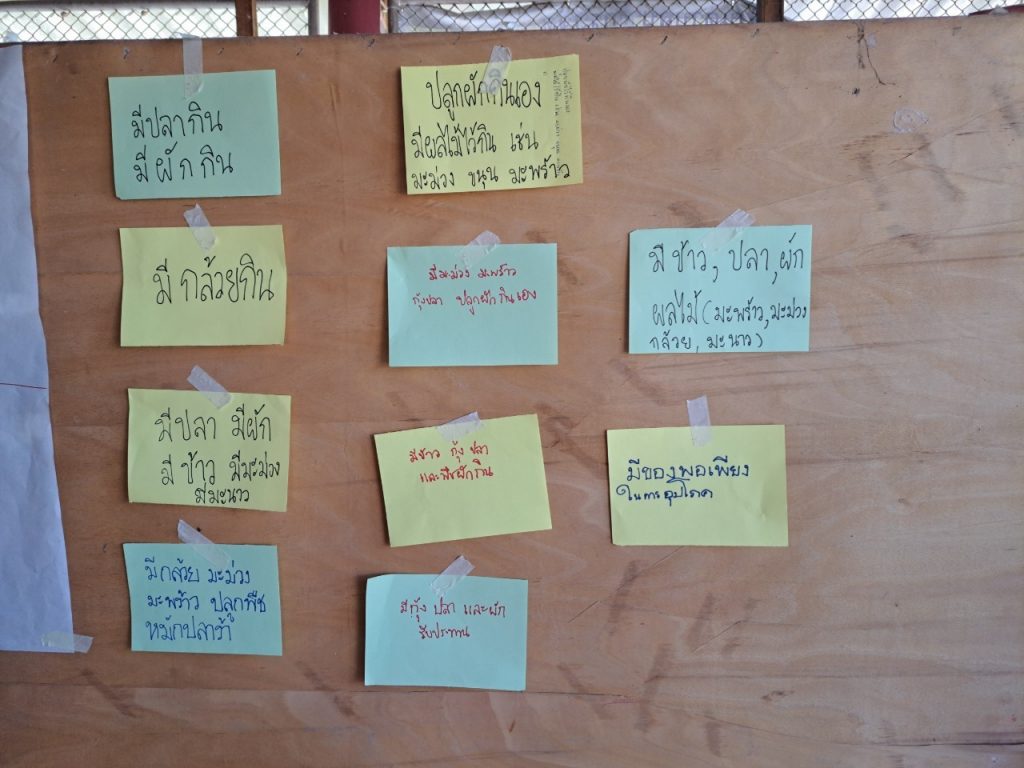 มีปลากิน
มีผักกิน
ปลูกผักกินเอง
มีผลไม้ไว้กิน เช่น
มะม่วง ขนุน มะพร้าว
มีกล้วยกิน
มีมะม่วง มะพร้าว
กุ้งปลา ปลูกผักกินเอง
มีข้าว, ปลา, ผัก
ผลไม้ (มะพร้าว, มะม่วง
กล้วย, มะนาว)
มีปลา มีผัก
มีข้าว มีมะม่วง
มีมะนาว
มีข้าว กุ้ง ปลา
และพืชผักกิน
มีของพอเพียง
ในการอุปโภค
มีกล้วย มะม่วง
มะพร้าว ปลูกพืช
หมักปลาร้า
มีกุ้ง ปลา และผัก
รับประทาน